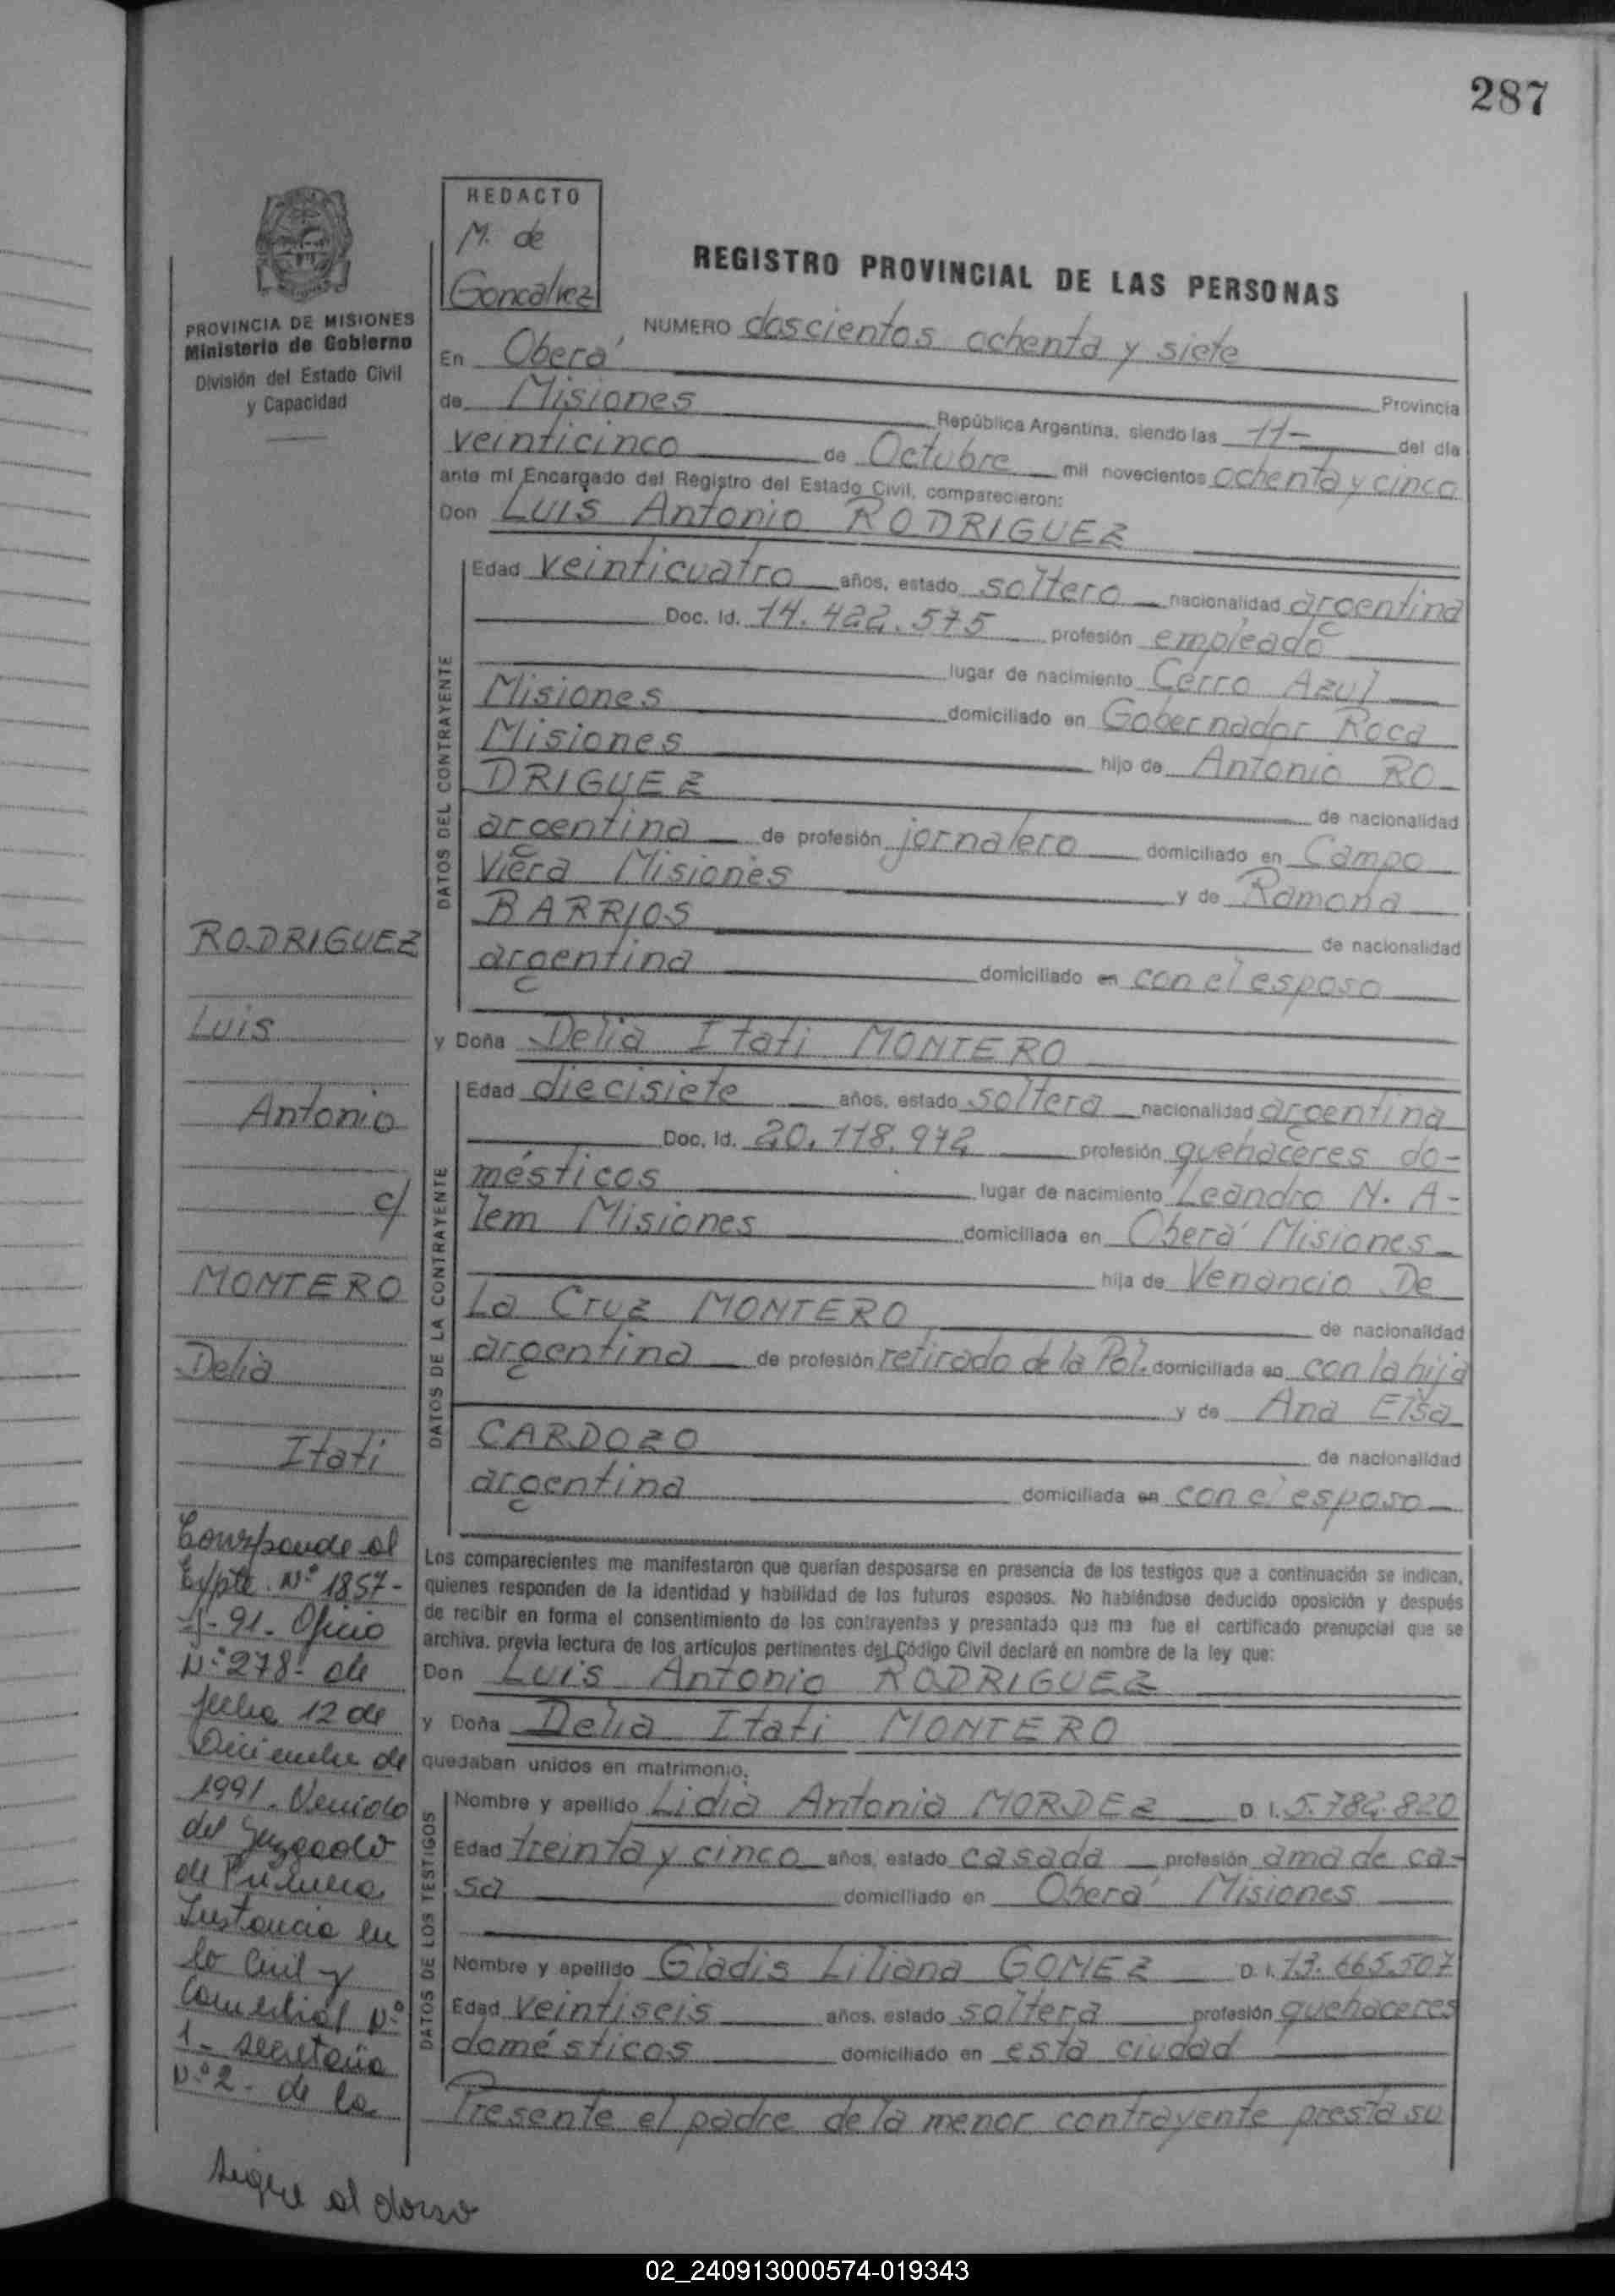 287
REDACTO
M. de
Goncalvez
PROVINCIA DE MISIONES
Ministerio de Gobierno
División del Estado Civil
y Capacidad
REGISTRO PROVINCIAL DE LAS PERSONAS
NUMERO doscientos ochenta y siete
En Oberá Provincia
de Misiones República Argentina, siendo las 11- del día
veinticinco de Octubre mil novecientos ochenta y cinco
ante mi Encargado del Registro del Estado Civil, comparecieron:
Don Luis Antonio RODRIGUEZ
DATOS DEL CONTRAYENTE
Edad veinticuatro años, estado soltero nacionalidad argentina
Doc. Id. 14.422.575 profesión empleado
lugar de nacimiento Cerro Azul
Misiones domiciliado en Gobernador Roca
Misiones hijo de Antonio RO-
DRIGUEZ de nacionalidad
argentina de profesión jornalero domiciliado en Campo
Viera Misiones y de Ramona
BARRIOS de nacionalidad
argentina domiciliado en con el esposo
y Doña Delia Itati MONTERO
DATOS DE LA CONTRAYENTE
Edad diecisiete años, estado soltera nacionalidad argentina
Doc. Id. 20.118.972 profesión quehaceres do-
mésticos lugar de nacimiento Leandro N. A-
lem Misiones domiciliada en Oberá Misiones
hija de Venancio De
La Cruz MONTERO de nacionalidad
argentina de profesión retirado de la Pol. domiciliada en con la hija
y de Ana Elsa
CARDOZO de nacionalidad
argentina domiciliada en con el esposo
Los comparecientes me manifestaron que querían desposarse en presencia de los testigos que a continuación se indican,
quienes responden de la identidad y habilidad de los futuros esposos. No habiéndose deducido oposición y después
de recibir en forma el consentimiento de los contrayentes y presentado que me fue el certificado prenupcial que se
archiva, previa lectura de los artículos pertinentes del Código Civil declaré en nombre de la ley que:
Don Luis Antonio RODRIGUEZ
y Doña Delia Itati MONTERO
quedaban unidos en matrimonio.
DATOS DE LOS TESTIGOS
Nombre y apellido Lidia Antonia MORDEZ D. I. 5.782.820
Edad treinta y cinco años, estado casada profesión ama de ca-
sa domiciliado en Oberá Misiones
Nombre y apellido Gladis Liliana GOMEZ D. I. 13.665.507
Edad veintiseis años, estado soltera profesión quehaceres
domésticos domiciliado en esta ciudad
Presente el padre de la menor contrayente presta su
RODRIGUEZ
Luis
Antonio
c/
MONTERO
Delia
Itati
Corresponde al
Expte. Nº 1857-
91- Oficio
Nº 278- de
fecha 12 de
Diciembre de
1991- Venido
del Juzgado
de Primera
Instancia en
lo Civil y
Comercial Nº
1- secretaria
Nº 2- de la
Sigue al dorso
02_240913000574-019343